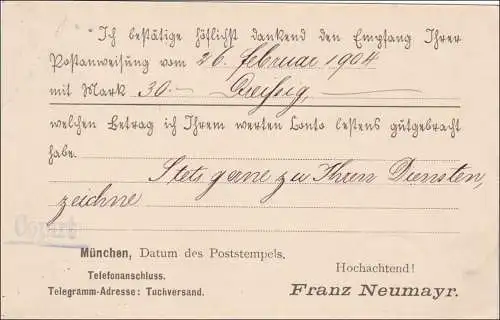 Ich bestätige höflichst dankend den Empfang Ihrer
Postanweisung vom 26. Februar 1904
mit Mark 30.— Dreißig,
welchen Betrag ich Ihrem werten Conto bestens gutgebracht
habe.
Stets gerne zu Ihren Diensten,
zeichne
Copirt
München, Datum des Poststempels.
Hochachtend!
Telefonanschluss.
Telegramm-Adresse: Tuchversand.
Franz Neumayr.